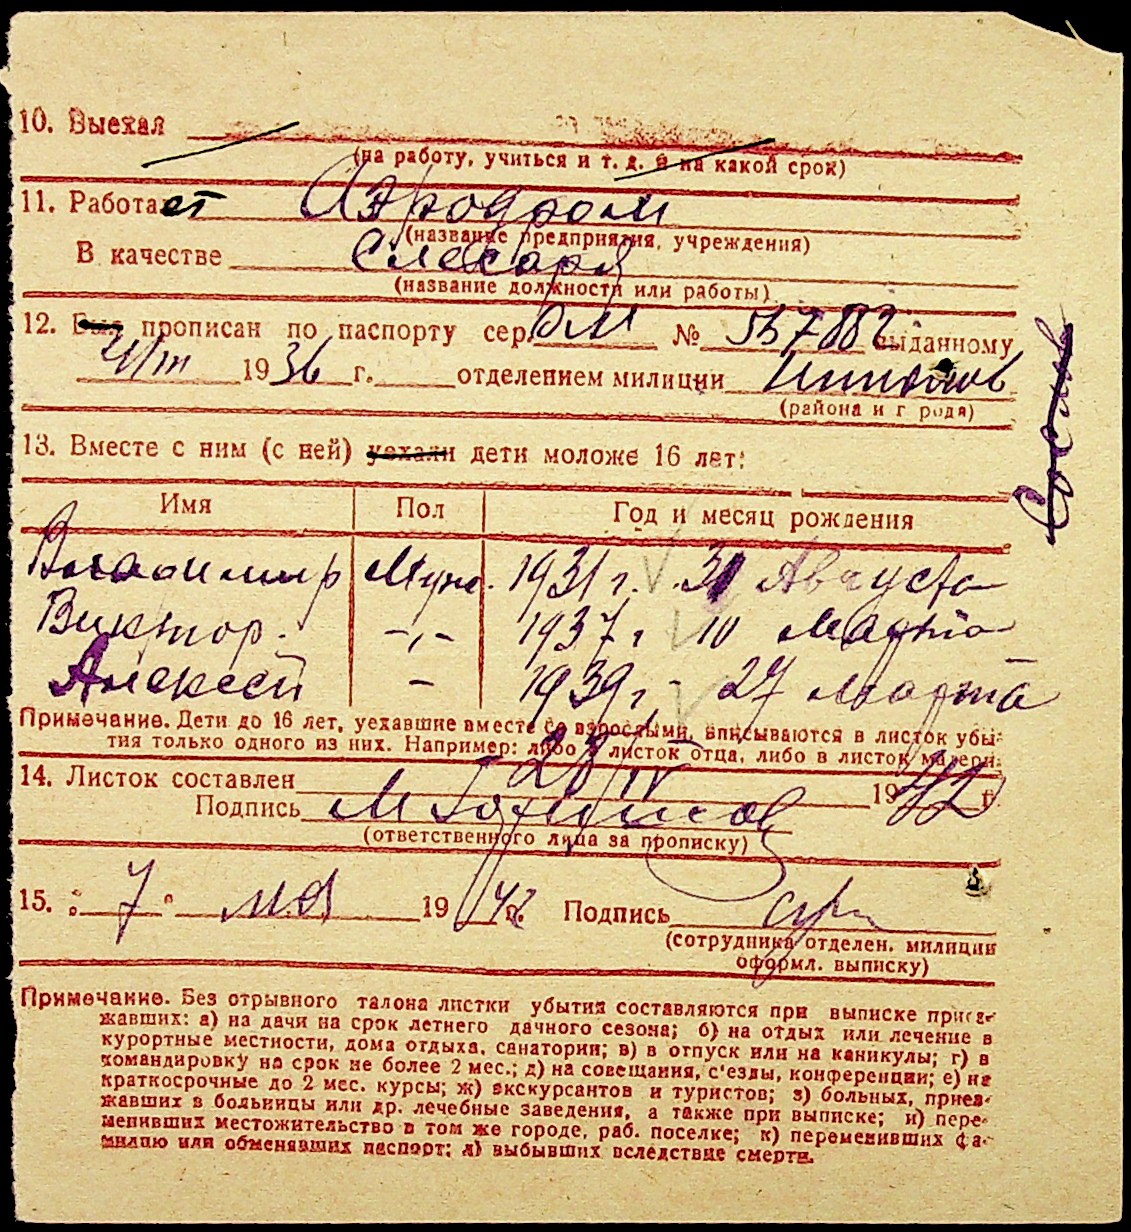 10. Выехал
(на работу, учиться и т. д. и на какой срок)
11. Работает Аэродром
(название предприятия, учреждения)
В качестве Слесаря
(название должности или работы)
12. Был прописан по паспорту сер. ОМ № 557882 выданному
1936 г. отделением милиции
(района и г рода)
13. Вместе с ним (с ней) уехали дети моложе 16 лет:
Имя Пол Год и месяц рождения
Владимир Муж. 1931 г. 31 Августа
Виктор. -„- 1937 г 10 Марта
Алексей - 1939 г - 27 марта
Примечание. Дети до 16 лет, уехавшие вместе со взрослыми, вписываются в листок убы-
тия только одного из них. Например: либо в листок отца, либо в листок матери.
14. Листок составлен 28/IV 1942 г.
Подпись
(ответственного лица за прописку)
15. „ 7 " мая 1942 г. Подпись
(сотрудника отделен. милиции
оформл. выписку)
Примечание. Без отрывного талона листки убытия составляются при выписке приез-
жавших: а) на дачи на срок летнего дачного сезона; б) на отдых или лечение в
курортные местности, дома отдыха, санатории; в) в отпуск или на каникулы; г) в
командировку на срок не более 2 мес.; д) на совещания, с'езды, конференции; е) на
краткосрочные до 2 мес. курсы; ж) экскурсантов и туристов; з) больных, приез-
жавших в больницы или др. лечебные заведения, а также при выписке; и) пере-
менивших местожительство в том же городе, раб. поселке; к) переменивших фа-
милию или обменявших паспорт; л) выбывших вследствие смерти.